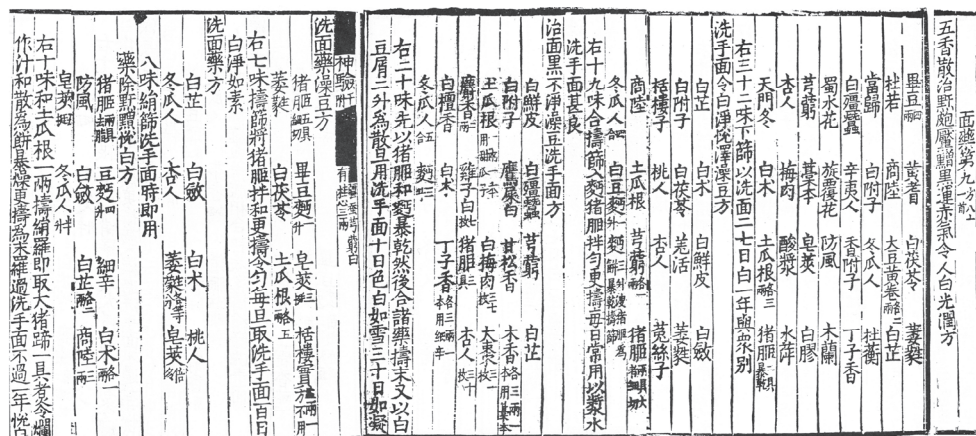 面藥第九 方八十一首
五香散治䵟皰黶䵴黑運赤氣令人白光潤方
畢豆四兩 黃耆 白茯苓 萎蕤
杜若 商陸 大豆黃卷各二兩 白芷
當歸 白附子 冬瓜人 杜衡
白殭蠶 辛夷人 香附子 丁子香
蜀水花 旋覆花 防風 木蘭
芎藭 藁本 皂莢 白膠
杏人 梅肉 酸漿 水萍
天門冬 白朮 土瓜根各三兩 猪胰二具暴乾
右三十二味下篩以洗面二七日白一年與衆別
洗手面令白淨悅澤澡豆方
白芷 白朮 白鮮皮 白斂
白附子 白茯苓 羌活 萎蕤
栝樓子 桃人 杏人 菟絲子
商陸 土瓜根 芎藭各一兩 猪胰兩具大者細切
冬瓜人四合 白豆麪一升 麪三升溲猪胰為餅暴乾擣篩
右十九味合擣篩入麪猪胰拌勻更擣每日常用以漿水
洗手面甚良
治面黑不淨澡豆洗手面方
白鮮皮 白殭蠶 芎藭 白芷
白附子 鷹屎白 甘松香 木香各三兩一本用藁本
土瓜根一兩一本用甜瓜子 白梅肉三七枚 大棗三十枚
麝香二兩 雞子白七枚 猪胰三具 杏人三十枚
白檀香 白朮 丁子香各三兩一本用細辛
冬瓜人五合 麪三升
右二十味先以猪胰和麪暴乾然後合諸藥擣末又以白
豆屑二升為散旦用洗手面十日色白如雪三十日如凝
神驗 有桂心三兩
洗面藥澡豆方
猪胰五具細切 畢豆麪一升 皂莢三挺 栝樓實三兩一方不用
萎蕤 白茯苓 土瓜根各五兩
右七味擣篩將猪胰拌和更擣令勻每旦取洗手面百日
白淨如素
洗面藥方
白芷 白斂 白朮 桃人
冬瓜人 杏人 萎蕤各等分 皂莢倍多
八味絹篩洗手面時即用
藥除䵟䵴悅白方
猪胰兩具去脂 豆麪四升 細辛 白朮各一兩
防風 白斂 白芷各二兩 商陸三兩
皂莢五挺 冬瓜人半升
右十味和土瓜根一兩擣絹羅即取大猪蹄一具煮令爛
作汁和散為餅暴燥更擣為末羅過洗手面不過一年悅白